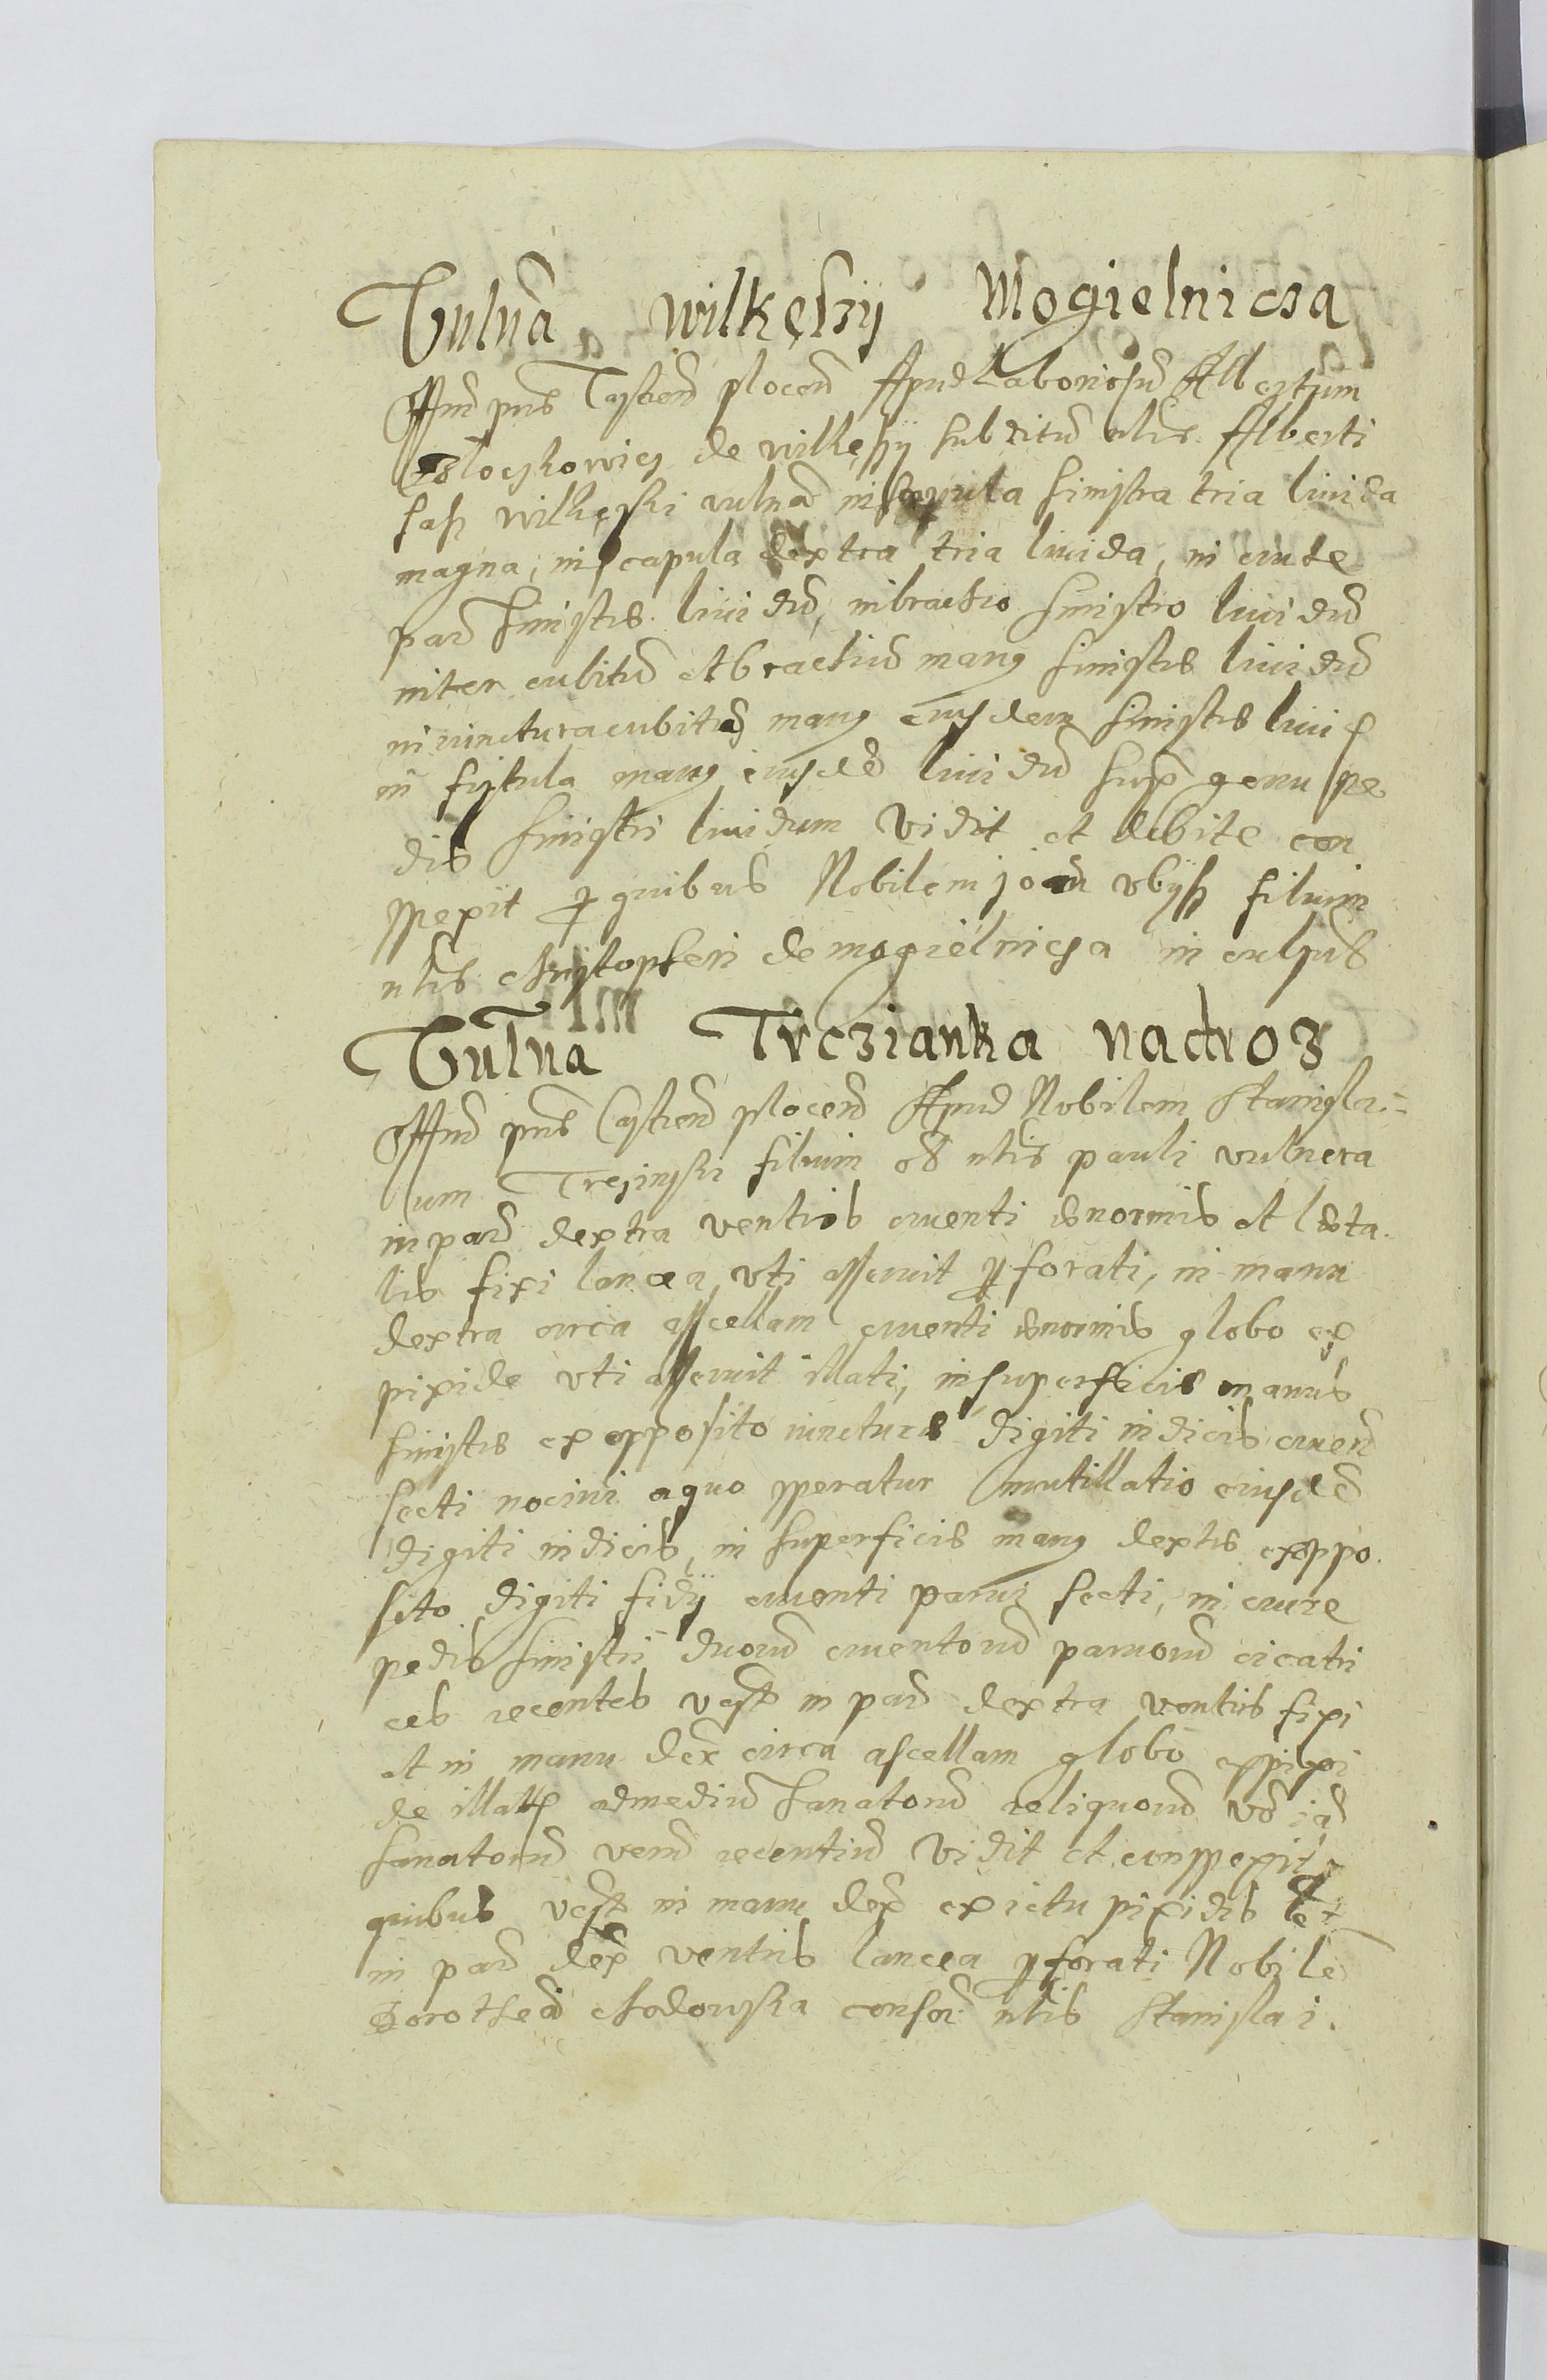 Vulna Wilkęsÿ Mogielnicza
Offm pns Castren plocen Apud Laboriosu Albertum
de Wilkęsÿ subditu nlis Alberti
Jasz Wilkęski vulna in scapula sinistra tria livida
magna, in scapula dextra tria livida, in cute
par sinistre lividu, in brachio sinistro lividu
inter cubitu et brachiu mang sinistre lividu
in iunctura cubitus mang eiusdem sinistre livid
in fistula mang eiusde lividu sup genu pe
dis sinistri lividum vidit et debite con
spexit p quibus Nobilem joan vbÿsz filium
nlis christopheri de mogielnicza inculpns
Vulna Trczianka nadroz
Offm pns Castren plocen Apud Nobilem Stanisla
um Trczinski filium ol nlis pauli vulnera
in par dextra ventris cruenti enormis et leta
lis fixi lancea vti asseruit pforati, in manu
dextra circa ascellam cruenti enormis globo ex
pixide vti asseruit illati, in superficie manus
sinistre ex opposito iuncture digiti indicis cruen
secti nocivi a quo speratur mutillatio eiusde
digiti indicis, in superficie mang dextre ex oppo
sito digiti fidÿ cruenti parvi secti, in crure
pedis sinistri duoru cruentoru parvoru cicatri
ces recentes vest in par dextra ventris fixi
et in manu dex circa ascellam globo expixi
de illat admediu sanatoru reliquoru vo ia
sanatoru veru recentiu vidit et conspexit p
quibus vest in manu dex ex ictu pixidis et
in par dex ventris lancea pforati Nobile
Dorothea chodowska consor nlis Stanislai.